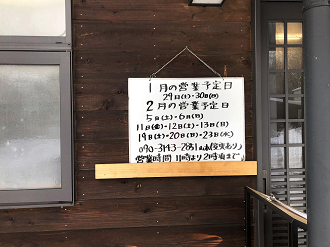 1月の営業予定日
29日(土)・30日(日)
2月の営業予定日
5日(土)・6日(日)
11日(金)・12日(土)・13日(日)
19日(土)・20日(日)・23日(水)
090-3143-2831
営業時間 11時より